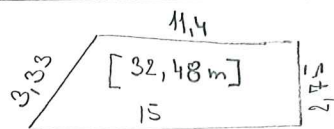 11,4
3,33
[32,48 m]
2,75
15